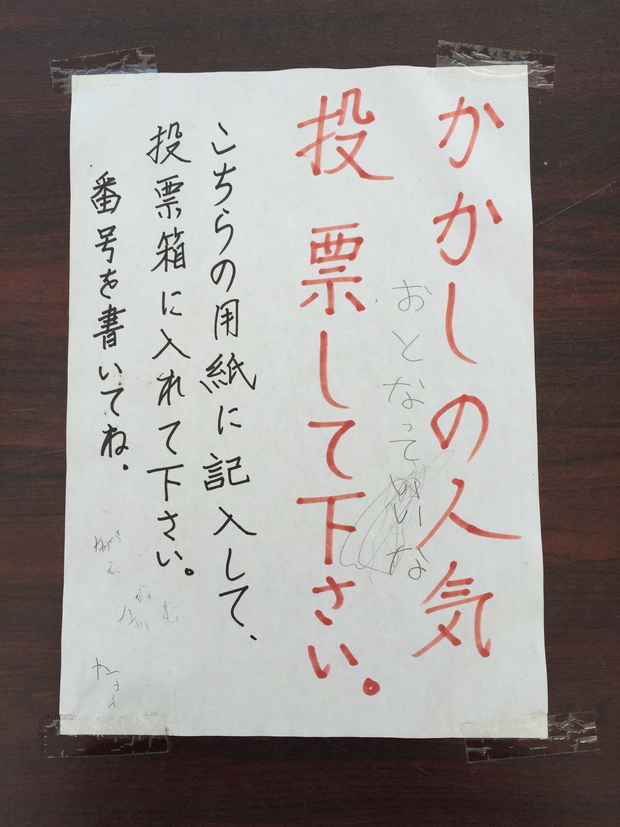 かかしの人気
おとなっていいな
投票して下さい。
こちらの用紙に記入して、
投票箱に入れて下さい。
番号を書いてね。